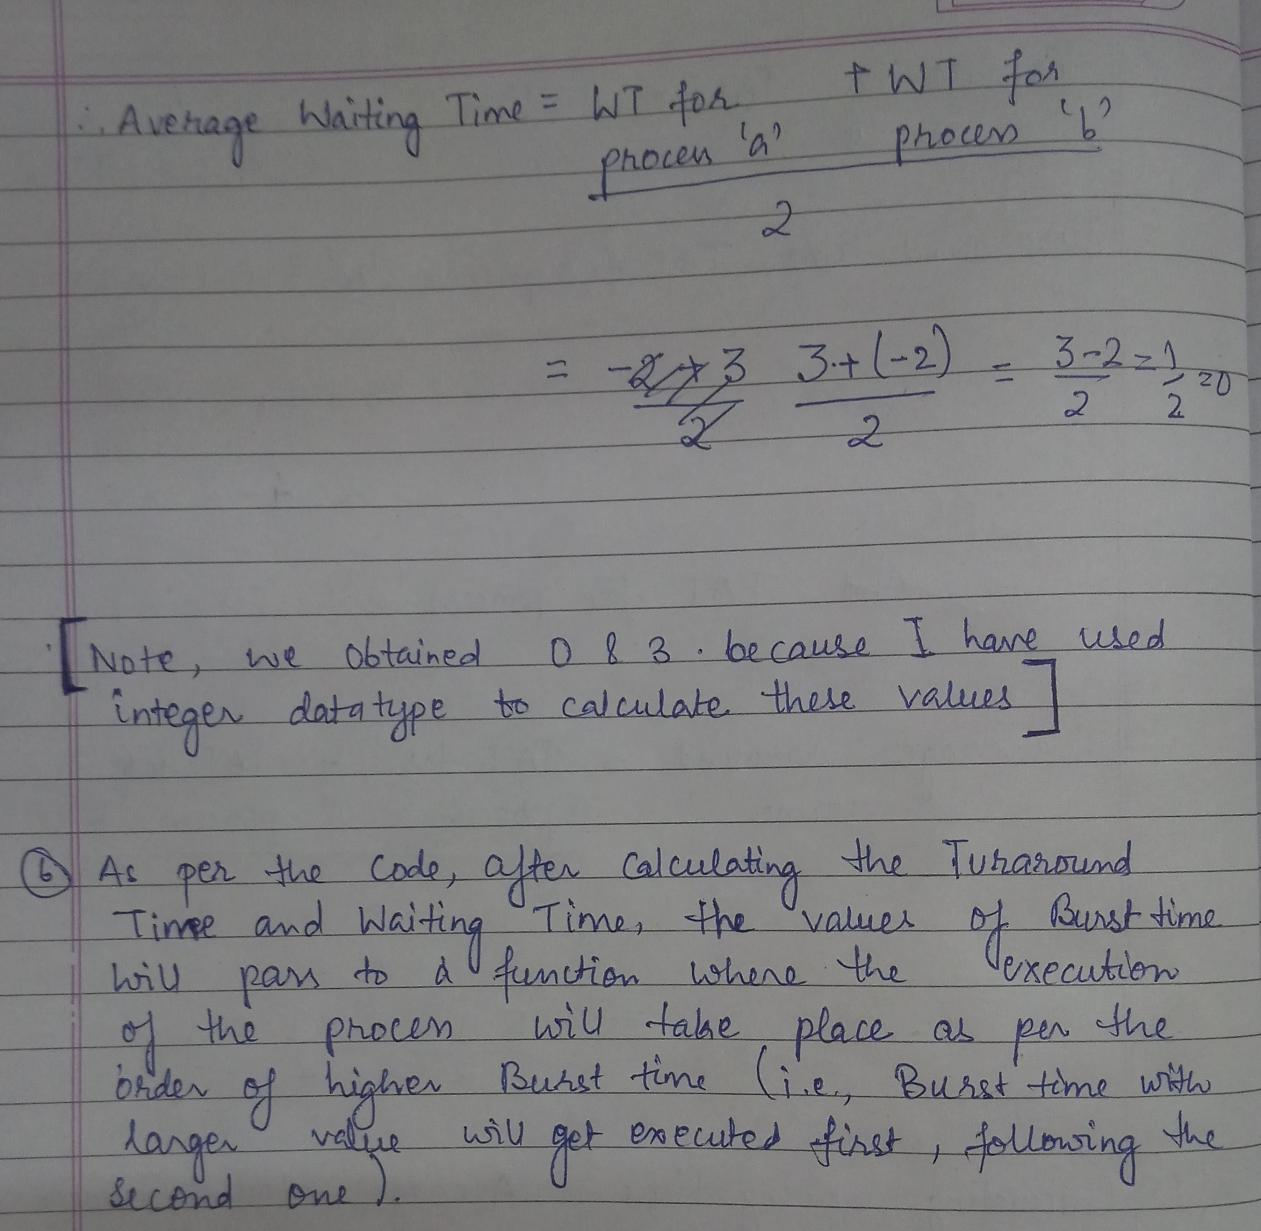 ∴ Average Waiting Time = WT for + WT for
process 'a' process 'b'
2
= -2+3 3+(-2) = 3-2 = 1 = 0
2 2 2 2
[Note, we obtained 0 & 3. because I have used
integer datatype to calculate these values]
⑥ As per the code, after calculating the Turaround
Time and Waiting Time, the values of Burst time
will pass to a function where the execution
of the process will take place as per the
order of higher Burst time (i.e., Burst time with
larger value will get executed first, following the
second one).